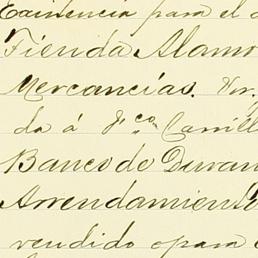 Existencia para el
Tienda Alamo
Mercancías. Por
da á Fco. Carrill
Banco de Duran
Arrendamiento
vendido opara